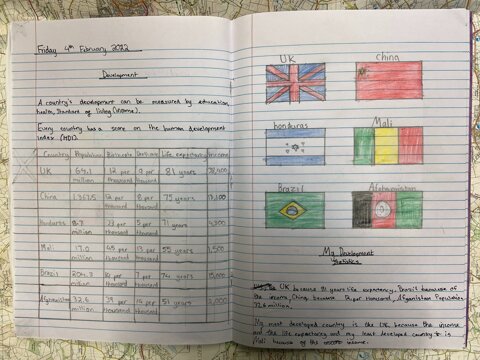 Friday 4th February 2022
Development
A country's development can be measured by education,
health, Standard of living (income).
Every country has a score on the human development
index (HDI).
Country Population Birth rate Death rate Life expectancy Income
UK 64.1 million 12 per thousand 9 per thousand 81 years 38,400
China 1,367.5 12 per thousand 8 per thousand 75 years 13,100
Honduras 8.7 million 23 per thousand 5 per thousand 71 years 4,900
Mali 17.0 million 45 per thousand 13 per thousand 55 years 1,500
Brazil million per thousand 7 per thousand 74 years 15,000
Afghanistan 32.6 million 39 per thousand per thousand 51 years 2,000
UK
China
honduras
Mali
Brazil
Afghanistan
My Development
Statistics
UK because 81 years life expectancy. Brazil because of
the income, China because 12 per thousand, Afghanistan Population
32.6 million.
My most developed country is the UK because the income
and the life expectancy and my least developed country is
Mali because of the income.